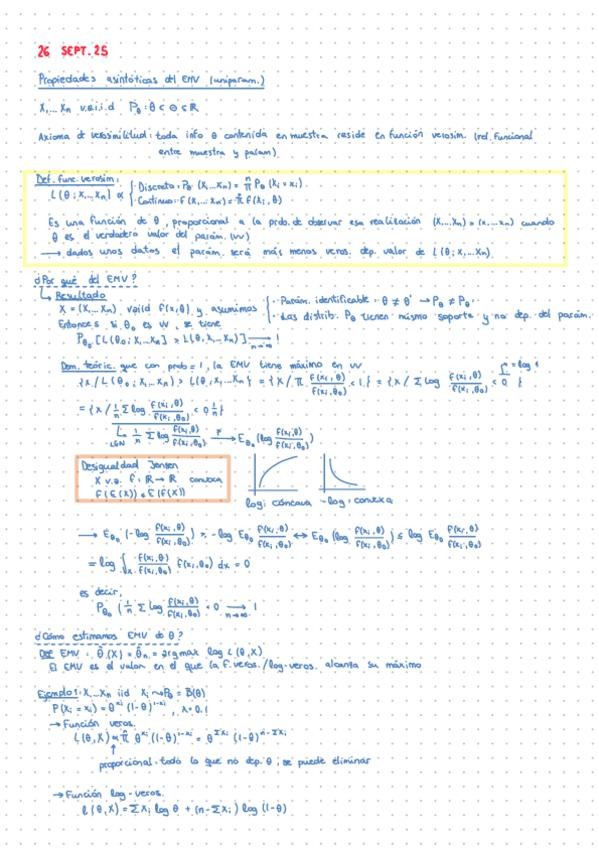 26 SEPT. 25
Propiedades asintóticas del EMV (uniparam.)
X₁...Xₙ v.a.i.i.d P_θ : θ ∈ Θ ⊆ ℝ
Axioma de verosimilitud: toda info θ contenida en muestra reside en función verosim. (rel. funcional
entre muestra y parám)
Def. func. verosim:
L(θ; x₁...xₙ) ∝ { · Discreto: P_θ (x₁...xₙ) = ∏ P_θ (X_i = x_i).
· Continuo: f(x₁...xₙ) = ∏ f(x_i, θ)
Es una función de θ, proporcional a la prdo. de observar esa realización (X₁...Xₙ) = (x₁...xₙ) cuando
θ es el verdadero valor del parám. (vv)
→ dados unos datos el parám. será más menos veros. dep. valor de L(θ; x₁...xₙ)
¿Por qué del EMV?
↳ Resultado
X = (X₁...Xₙ) vaiid f(x,θ) y asumimos { · Parám. identificable: θ ≠ θ' → P_θ ≠ P_θ'
· Las distrib. P_θ tienen mismo soporte y no dep. del parám.
Entonces si θ₀ es vv, se tiene
P_θ₀ [L(θ₀; X₁...Xₙ) > L(θ, X₁...Xₙ)] →(n→∞) 1
Dem. teóric. que con prob = 1, la EMV tiene máximo en vv
{x / L(θ₀; x₁...xₙ) > L(θ; x₁...xₙ)} = {x / ∏ f(x_i,θ)/f(x_i,θ₀) < 1} = {x / Σ log f(x_i,θ)/f(x_i,θ₀) < 0} = log 1
= {x / 1/n Σ log f(x_i,θ)/f(x_i,θ₀) < 0 }
↳ LGN 1/n Σ log f(x_i,θ)/f(x_i,θ₀) →P E_θ₀ (log f(x_i,θ)/f(x_i,θ₀))
Desigualdad Jensen
X v.a. f: ℝ → ℝ convexa
f(E(X)) ≤ E(f(X))
log: cóncava -log: convexa
→ E_θ₀ (-log f(x_i,θ)/f(x_i,θ₀)) ≥ -log E_θ₀ f(x_i,θ)/f(x_i,θ₀) ↔ E_θ₀ (log f(x_i,θ)/f(x_i,θ₀)) ≤ log E_θ₀ f(x_i,θ)/f(x_i,θ₀)
= log ∫_X f(x_i,θ)/f(x_i,θ₀) f(x_i,θ₀) dx = 0
es decir,
P_θ₀ (1/n Σ log f(x_i,θ)/f(x_i,θ₀) < 0 →(n→∞) 1
¿Cómo estimamos EMV de θ?
Def EMV: θ̂(X) = θ̂ₙ = argmax log L(θ, X)
El EMV es el valor en el que la f. veros. / log-veros. alcanza su máximo
Ejemplo 1: X₁...Xₙ iid X_i ~ P_θ = B(θ)
P(X_i = x_i) = θ^{x_i} (1-θ)^{1-x_i}, x = 0,1
→ Función veros.
L(θ, X) ∝ ∏ θ^{x_i} (1-θ)^{1-x_i} = θ^{Σx_i} (1-θ)^{n-Σx_i}
proporcional: todo lo que no dep. θ, se puede eliminar
→ Función log-veros.
ℓ(θ, X) = Σx_i log θ + (n-Σx_i) log (1-θ)